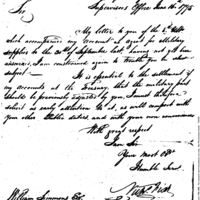 Supervisors Office June 16, 1795
Sir,
My letter to you of the
which accompanied my account as agent for Military
supplies to the 30th of September last, having not yet been
answered, I am constrained again to trouble you on that
subject.
It is essential to the settlement of
my accounts at the Treasury, that the military part
should be previously adjusted by you. I must therefore
solicit as early attention to it, as will comport with
your other public duties and with your own convenience
With great respect
I am Sir
Your Most Obt.
Humble Servt.
William Simmons Esq.